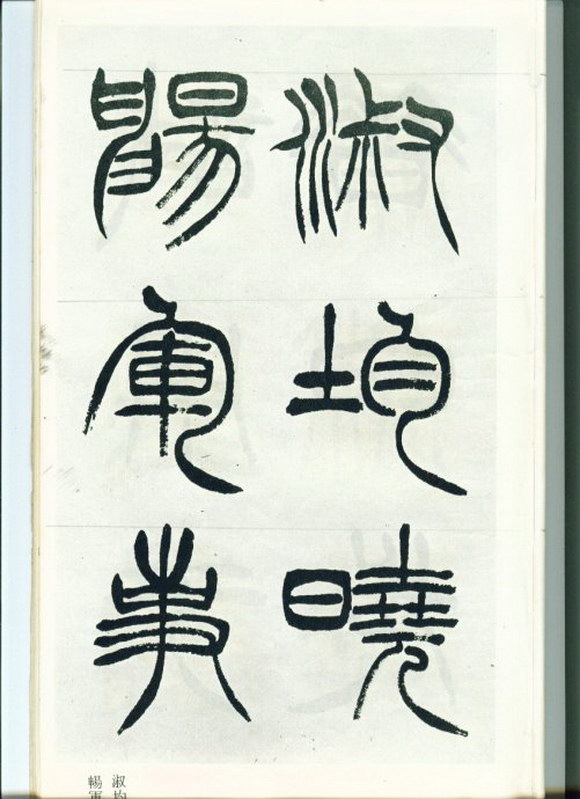 淑均曉
暢軍事
淑均
暢軍